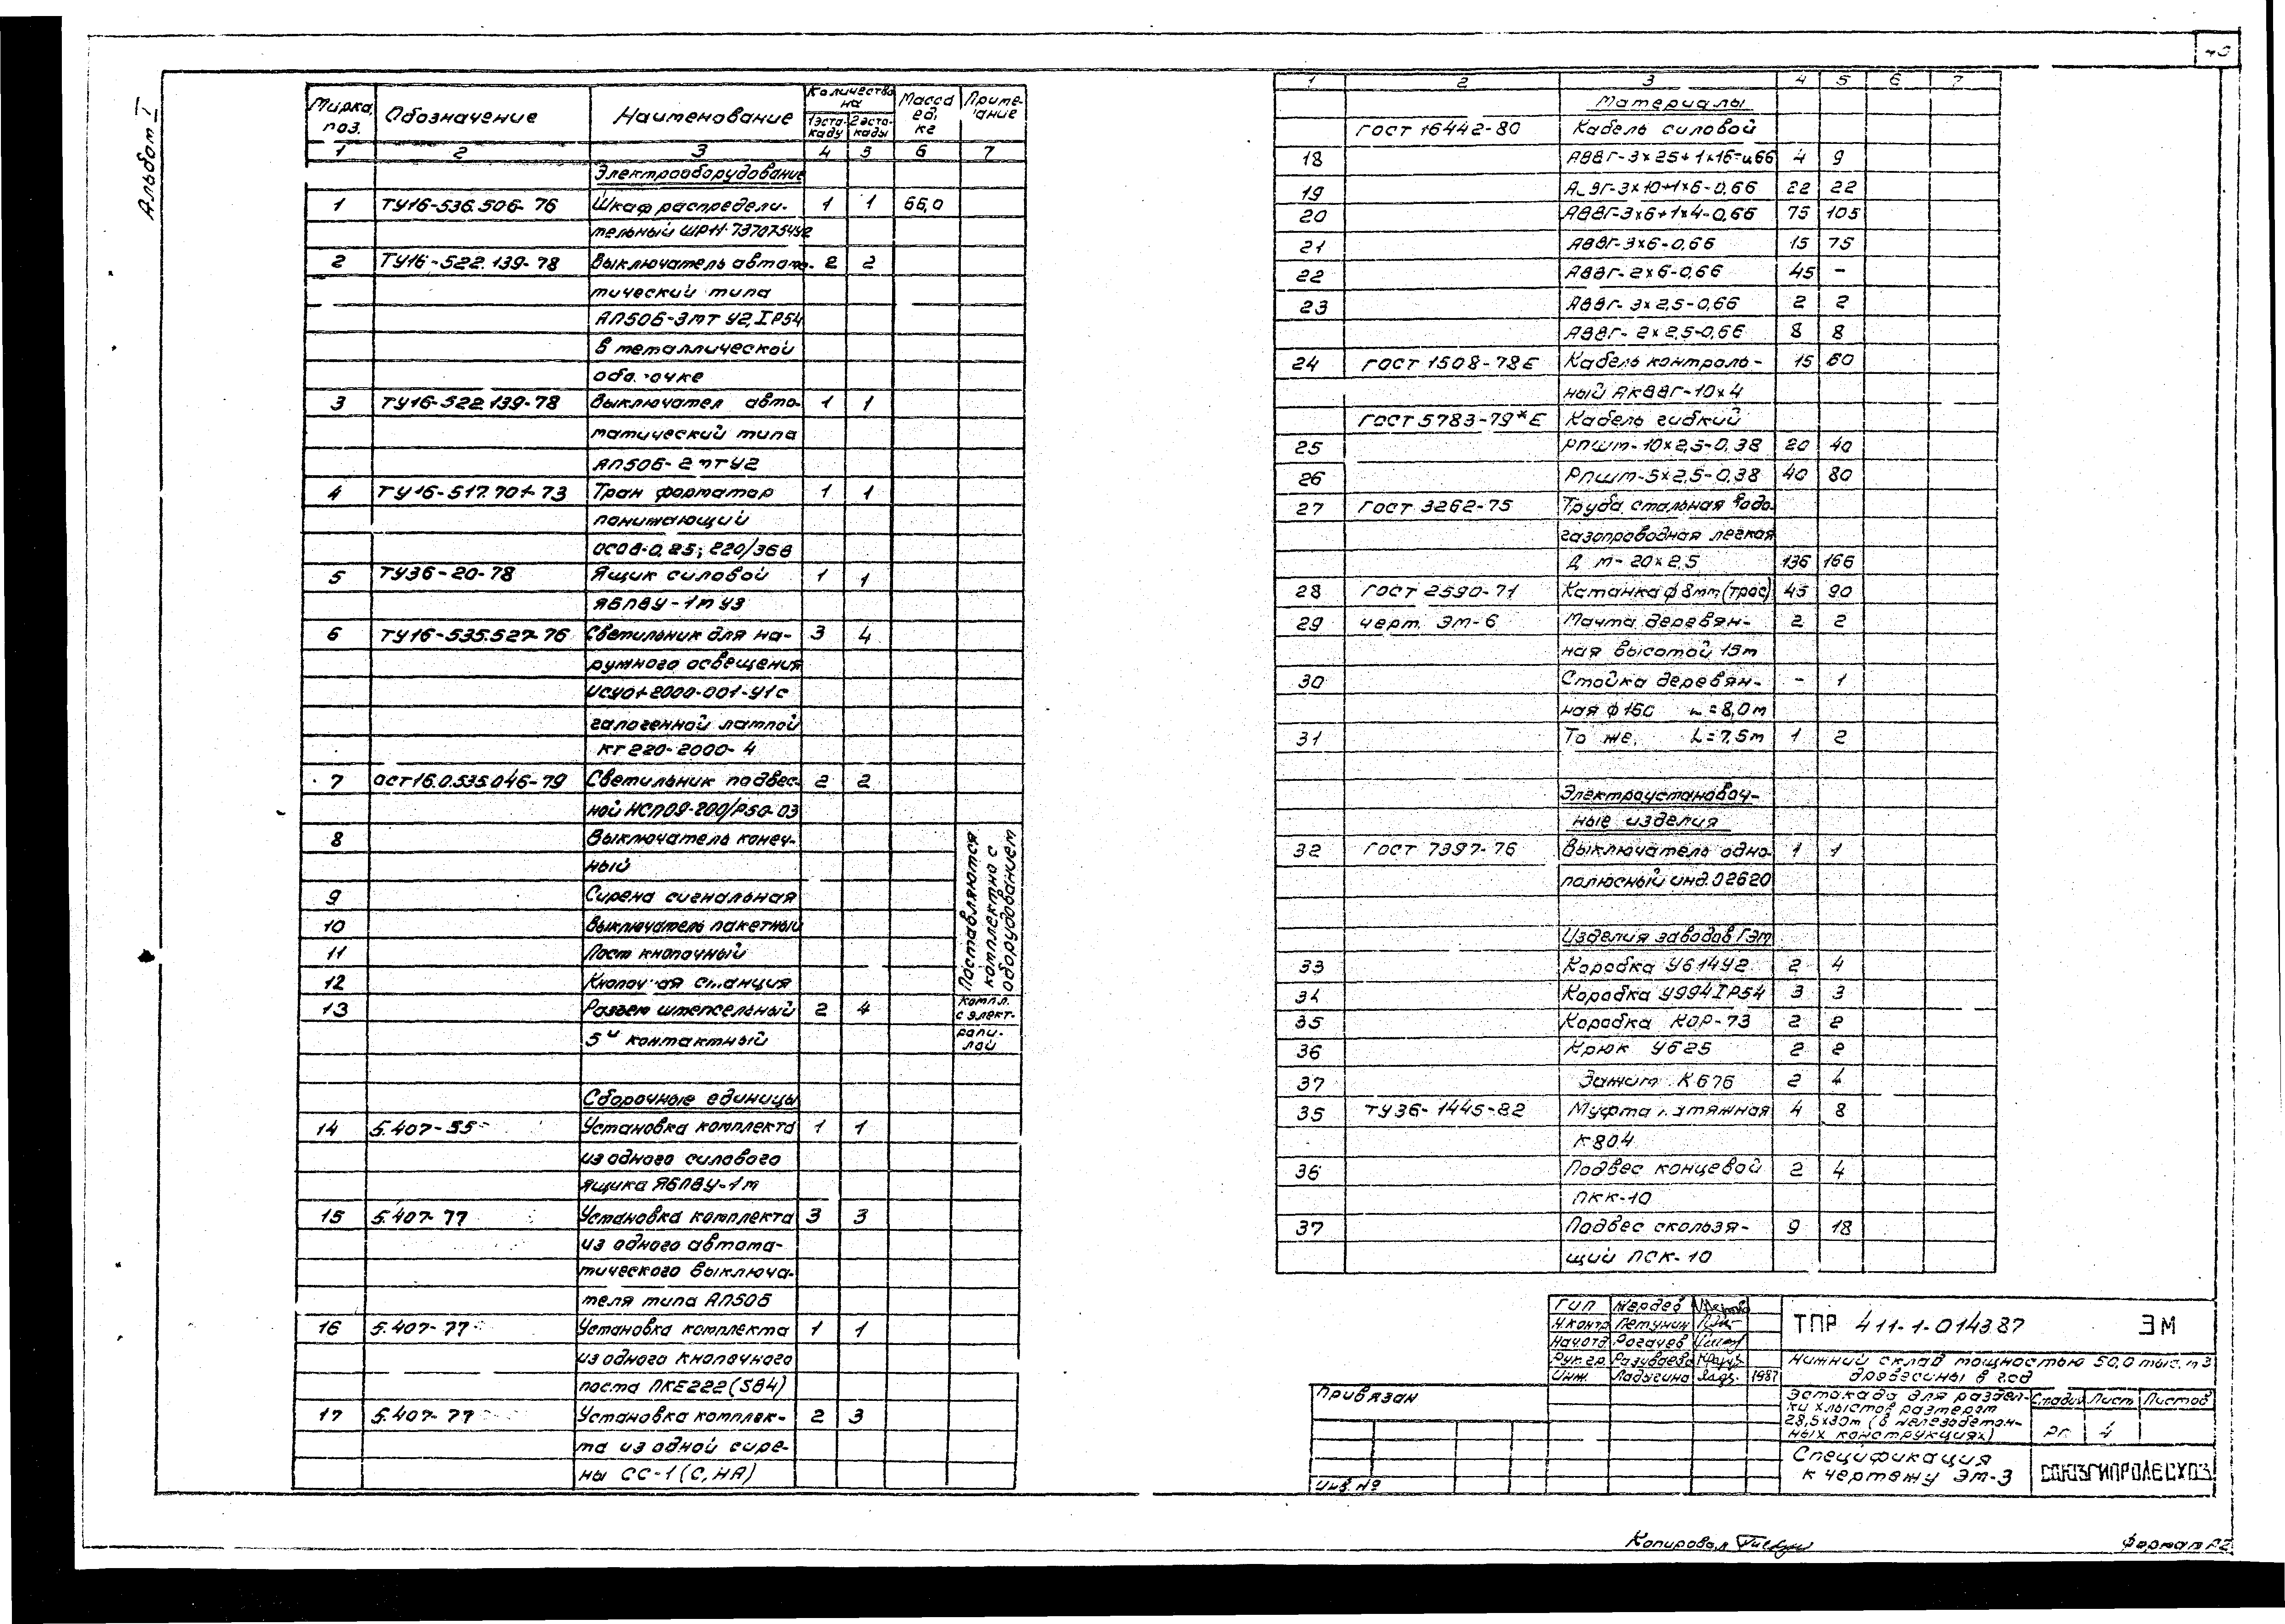 Альбом I
Марка, поз. | Обозначение | Наименование | Количество на | Масса ед, кг | Приме- чание
1 эста- каду | 2 эста- кады
1 | 2 | 3 | 4 | 5 | 6 | 7
Электрооборудование
1 | ТУ16-536.506-76 | Шкаф распредели- | 1 | 1 | 66,0
тельный ШР11-73707-54У2
2 | ТУ16-522.139-78 | Выключатель автома- | 2 | 2
тический типа
АП50Б-3мТ У2, IP54
в металлической
обо. очке
3 | ТУ16-522.139-78 | Выключател авто- | 1 | 1
матический типа
АП50Б-2мТУ2
4 | ТУ16-517.701-73 | Тран форматор | 1 | 1
понижающий
ОСОВ-0,25; 220/36В
5 | ТУ36-20-78 | Ящик силовой | 1 | 1
ЯБПВУ-1м У3
6 | ТУ16-535.527-76 | Светильник для на- | 3 | 4
ружного освещения
ИСУ01-2000-001-У1 с
галогенной лампой
КГ220-2000-4
7 | ОСТ16.0.535.046-79 | Светильник подвес- | 2 | 2
ной НСП09-200/Р50-03
8 | Выключатель конеч-
ный
9 | Сирена сигнальная
10 | Выключатель пакетный
11 | Пост кнопочный
12 | Кнопоч ая станция
Поставляются комплектно с оборудованием
13 | Разъем штепсельный | 2 | 4 | компл. с элект- ропи- лой
5и контактный
Сборочные единицы
14 | 5.407-55 | Установка комплекта | 1 | 1
из одного силового
ящика ЯБПВУ-1м
15 | 5.407-77 | Установка комплекта | 3 | 3
из одного автома-
тического выключа-
теля типа АП50Б
16 | 5.407-77 | Установка комплекта | 1 | 1
из одного кнопочного
поста ПКЕ222 (SB4)
17 | 5.407-77 | Установка комплек- | 2 | 3
та из одной сире-
ны СС-1 (С, НА)
1 | 2 | 3 | 4 | 5 | 6 | 7
Материалы
ГОСТ 16442-80 | Кабель силовой
18 | АВВГ-3х25+1х16-0,66 | 4 | 9
19 | А ВГ-3х10+1х6-0,66 | 22 | 22
20 | АВВГ-3х6+1х4-0,66 | 75 | 105
21 | АВВГ-3х6-0,66 | 15 | 75
22 | АВВГ-2х6-0,66 | 45 | -
23 | АВВГ-3х2,5-0,66 | 2 | 2
АВВГ-2х2,5-0,66 | 8 | 8
24 | ГОСТ 1508-78Е | Кабель контроль- | 15 | 60
ный АКВВГ-10х4
ГОСТ 5783-79*Е | Кабель гибкий
25 | РПШм-10х2,5-0,38 | 20 | 40
26 | РПШм-5х2,5-0,38 | 40 | 80
27 | ГОСТ 3262-75 | Труба стальная водо-
газопроводная легкая
Д м-20х2,5 | 136 | 166
28 | ГОСТ 2590-71 | Катанка ф 8мм (трос) | 45 | 90
29 | черт. ЭМ-6 | Мачта деревян- | 2 | 2
ная высотой 15м
30 | Стойка деревян- | - | 1
ная ф 160 L=8,0м
31 | То же, L=7,5м | 1 | 2
Электроустановоч-
ные изделия
32 | ГОСТ 7397-76 | Выключатель одно- | 1 | 1
полюсный инд.02620
Изделия заводов ГЭМ
33 | Коробка У614У2 | 2 | 4
34 | Коробка У994 IP54 | 3 | 3
35 | Коробка КОР-73 | 2 | 2
36 | Крюк У625 | 2 | 2
37 | Зажим К676 | 2 | 4
35 | ТУ36-1445-82 | Муфта н тяжная | 4 | 8
К804
36 | Подвес концевой | 2 | 4
ПКК-10
37 | Подвес скользя- | 9 | 18
щий ПСК-10
ГИП | Мердев
Н.контр | Петунин
Нач.отд | Рогачев
Рук.гр. | Разуваева
Инж. | Ладыгина | 1987
ТПР 411-1-0143.87 ЭМ
Нижний склад мощностью 50,0 тыс. м3
древесины в год
Эстакада для раздел-
ки хлыстов размером
28,5х30м (в железобетон-
ных конструкциях)
Стадия | Лист | Листов
РП | 4
Спецификация
к чертежу ЭМ-3
СОЮЗГИПРОЛЕСХОЗ
Привязан
Инв. №
Копировал
Формат А2